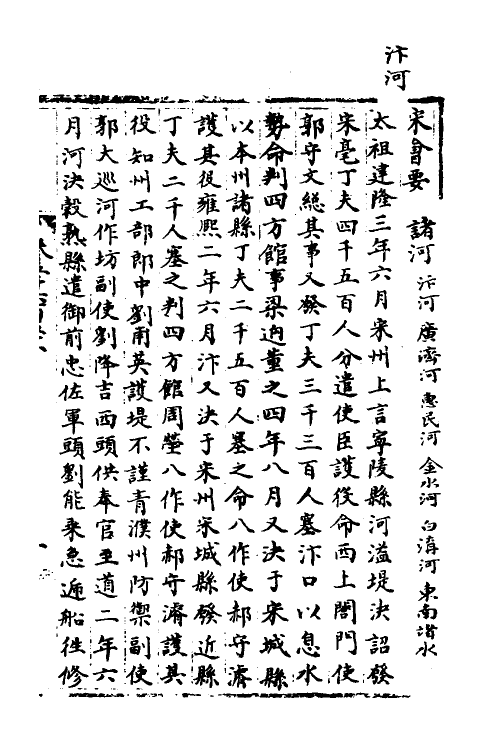 汴河
宋會要　諸河　汴河　廣濟河　惠民河　金水河　白溝河　東南諸水
太祖建隆三年六月宋州上言寧陵縣河溢堤決詔發
宋亳丁夫四千五百人分遣使臣護役命西上閤門使
郭守文總其事又發丁夫三千三百人塞汴口以息水
勢命判四方館事梁迥董之四年八月又決于宋城縣
以本州諸縣丁夫二千五百人塞之命八作使郝守濬
護其役雍熙二年六月汴又決于宋州宋城縣發近縣
丁夫二千人塞之判四方館周瑩八作使郝守濬護其
役知州工部郎中劉甫英護堤不謹青濮州防禦副使
郭大巡河作坊副使劉降吉西頭供奉官至道二年六
月河決穀熟縣遣御前忠佐軍頭劉能乘急遞船往修